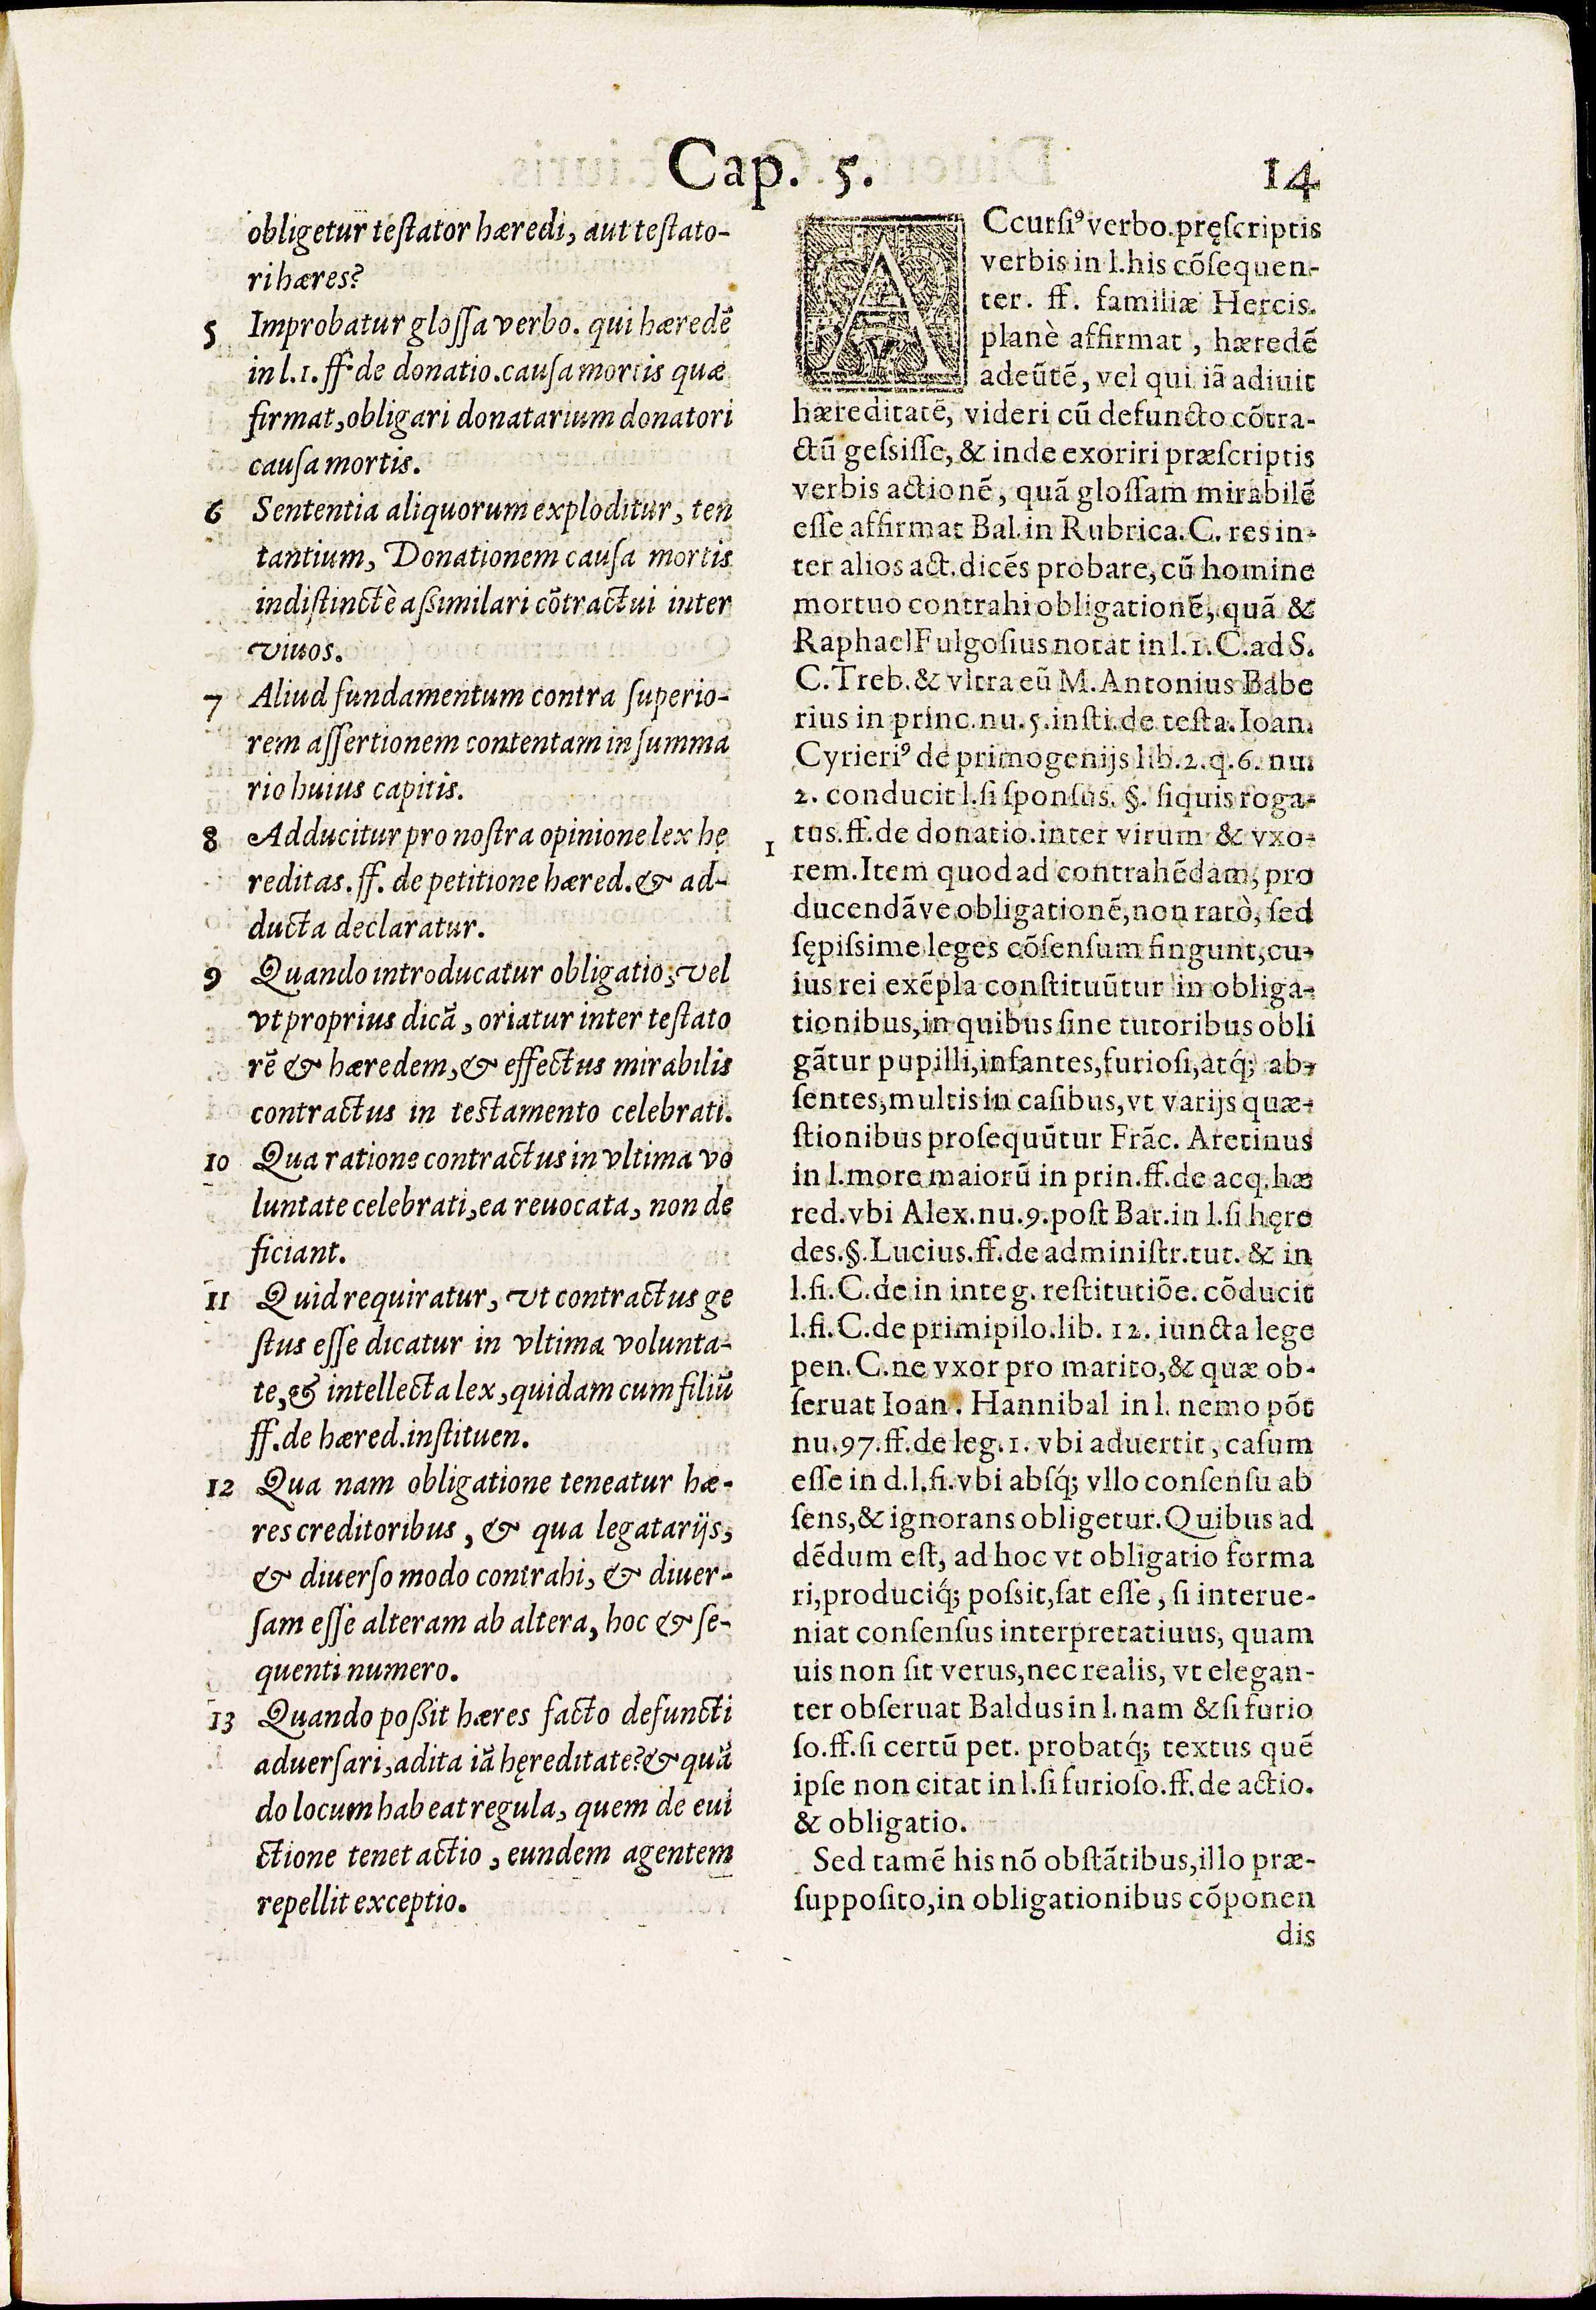 Cap. 5.
14
obligetur teſtator hæredi, aut teſtato-
ri hæres?
5 Improbatur gloſſa verbo. qui hæredẽ
in l.1. ff. de donatio. cauſa mortis quæ
firmat, obligari donatarium donatori
cauſa mortis.
6 Sententia aliquorum exploditur, ten
tantium, Donationem cauſa mortis
indiſtinctè aſsimilari cõtractui inter
viuos.
7 Aliud fundamentum contra ſuperio-
rem aſſertionem contentam in ſumma
rio huius capitis.
8 Adducitur pro noſtra opinione lex hę
reditas. ff. de petitione hæred. & ad-
ducta declaratur.
9 Quando introducatur obligatio, vel
vt proprius dicã, oriatur inter teſtato
rẽ & hæredem, & effectus mirabilis
contractus in teſtamento celebrati.
10 Qua ratione contractus in vltima vo
luntate celebrati, ea reuocata, non de
ficiant.
11 Quid requiratur, vt contractus ge
ſtus eſſe dicatur in vltima volunta-
te, & intellecta lex, quidam cum filiũ
ff. de hæred. inſtituen.
12 Qua nam obligatione teneatur hæ-
res creditoribus, & qua legatarijs,
& diuerſo modo contrahi, & diuer-
ſam eſſe alteram ab altera, hoc & ſe-
quenti numero.
13 Quando poſsit hæres facto defuncti
aduerſari, adita iã hęreditate? & quã
do locum habeat regula, quem de eui
ctione tenet actio, eundem agentem
repellit exceptio.
ACcurſiꝰ verbo. pręſcriptis
verbis in l. his cõſequen-
ter. ff. familiæ Hercis.
planè affirmat, hæredẽ
adeũtẽ, vel qui iã adiuit
hæreditatẽ, videri cũ defuncto cõtra-
ctũ geſsiſſe, & inde exoriri præſcriptis
verbis actionẽ, quã gloſſam mirabilẽ
eſſe affirmat Bal. in Rubrica. C. res in-
ter alios act. dicẽs probare, cũ homine
mortuo contrahi obligationẽ, quã &
Raphael Fulgoſius notat in l.1. C. ad S.
C. Treb. & vltra eũ M. Antonius Babe
rius in princ. nu. 5. inſti. de teſta. Ioan.
Cyrieriꝰ de primogenijs lib. 2. q. 6. nu.
2. conducit l. ſi ſponſus. §. ſi quis roga-
1 tus. ff. de donatio. inter virum & vxo-
rem. Item quod ad contrahẽdam, pro
ducendãve obligationẽ, non rarò, ſed
ſępiſsime leges cõſenſum fingunt, cu-
ius rei exẽpla conſtituũtur in obliga-
tionibus, in quibus ſine tutoribus obli
gãtur pupilli, infantes, furioſi, atq́; ab-
ſentes, multis in caſibus, vt varijs quæ-
ſtionibus proſequũtur Frãc. Aretinus
in l. more maiorũ in prin. ff. de acq. hæ
red. vbi Alex. nu. 9. poſt Bar. in l. ſi hęre
des. §. Lucius. ff. de adminiſtr. tut. & in
l. fi. C. de in integ. reſtitutiõe. cõducit
l. fi. C. de primipilo. lib. 12. iuncta lege
pen. C. ne vxor pro marito, & quæ ob-
ſeruat Ioan. Hannibal in l. nemo põt
nu. 97. ff. de leg. 1. vbi aduertit, caſum
eſſe in d. l. fi. vbi abſq́; vllo conſenſu ab
ſens, & ignorans obligetur. Quibus ad
dẽdum eſt, ad hoc vt obligatio forma
ri, produciq́; poſsit, ſat eſſe, ſi interue-
niat conſenſus interpretatiuus, quam
uis non ſit verus, nec realis, vt elegan-
ter obſeruat Baldus in l. nam & ſi furio
ſo. ff. ſi certũ pet. probatq́; textus quẽ
ipſe non citat in l. ſi furioſo. ff. de actio.
& obligatio.
Sed tamẽ his nõ obſtãtibus, illo præ-
ſuppoſito, in obligationibus cõponen
dis